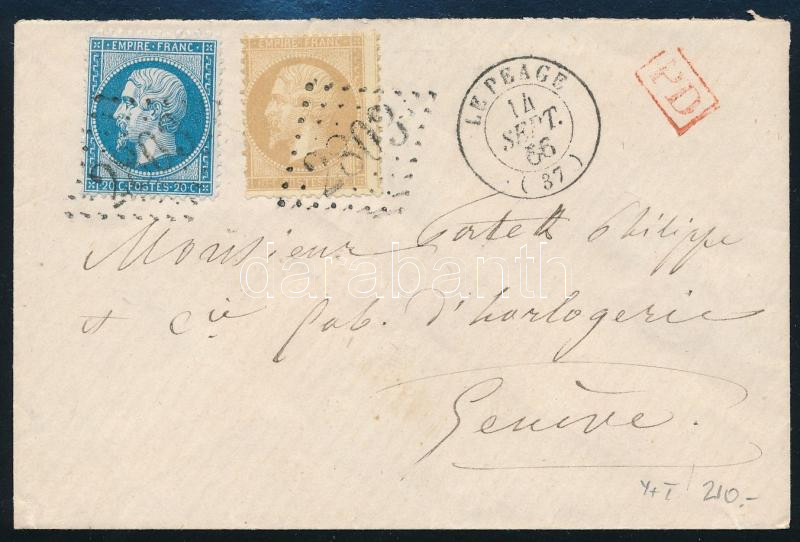 EMPIRE FRANC
EMPIRE FRANC
LE PEAGE
14
SEPT.
66
(37)
PD
2803
20 C·POSTES·20 C
Monsieur Patek Philippe
& Cie fab. d'horlogerie
Genève.
darabanth
Y+T 210.-